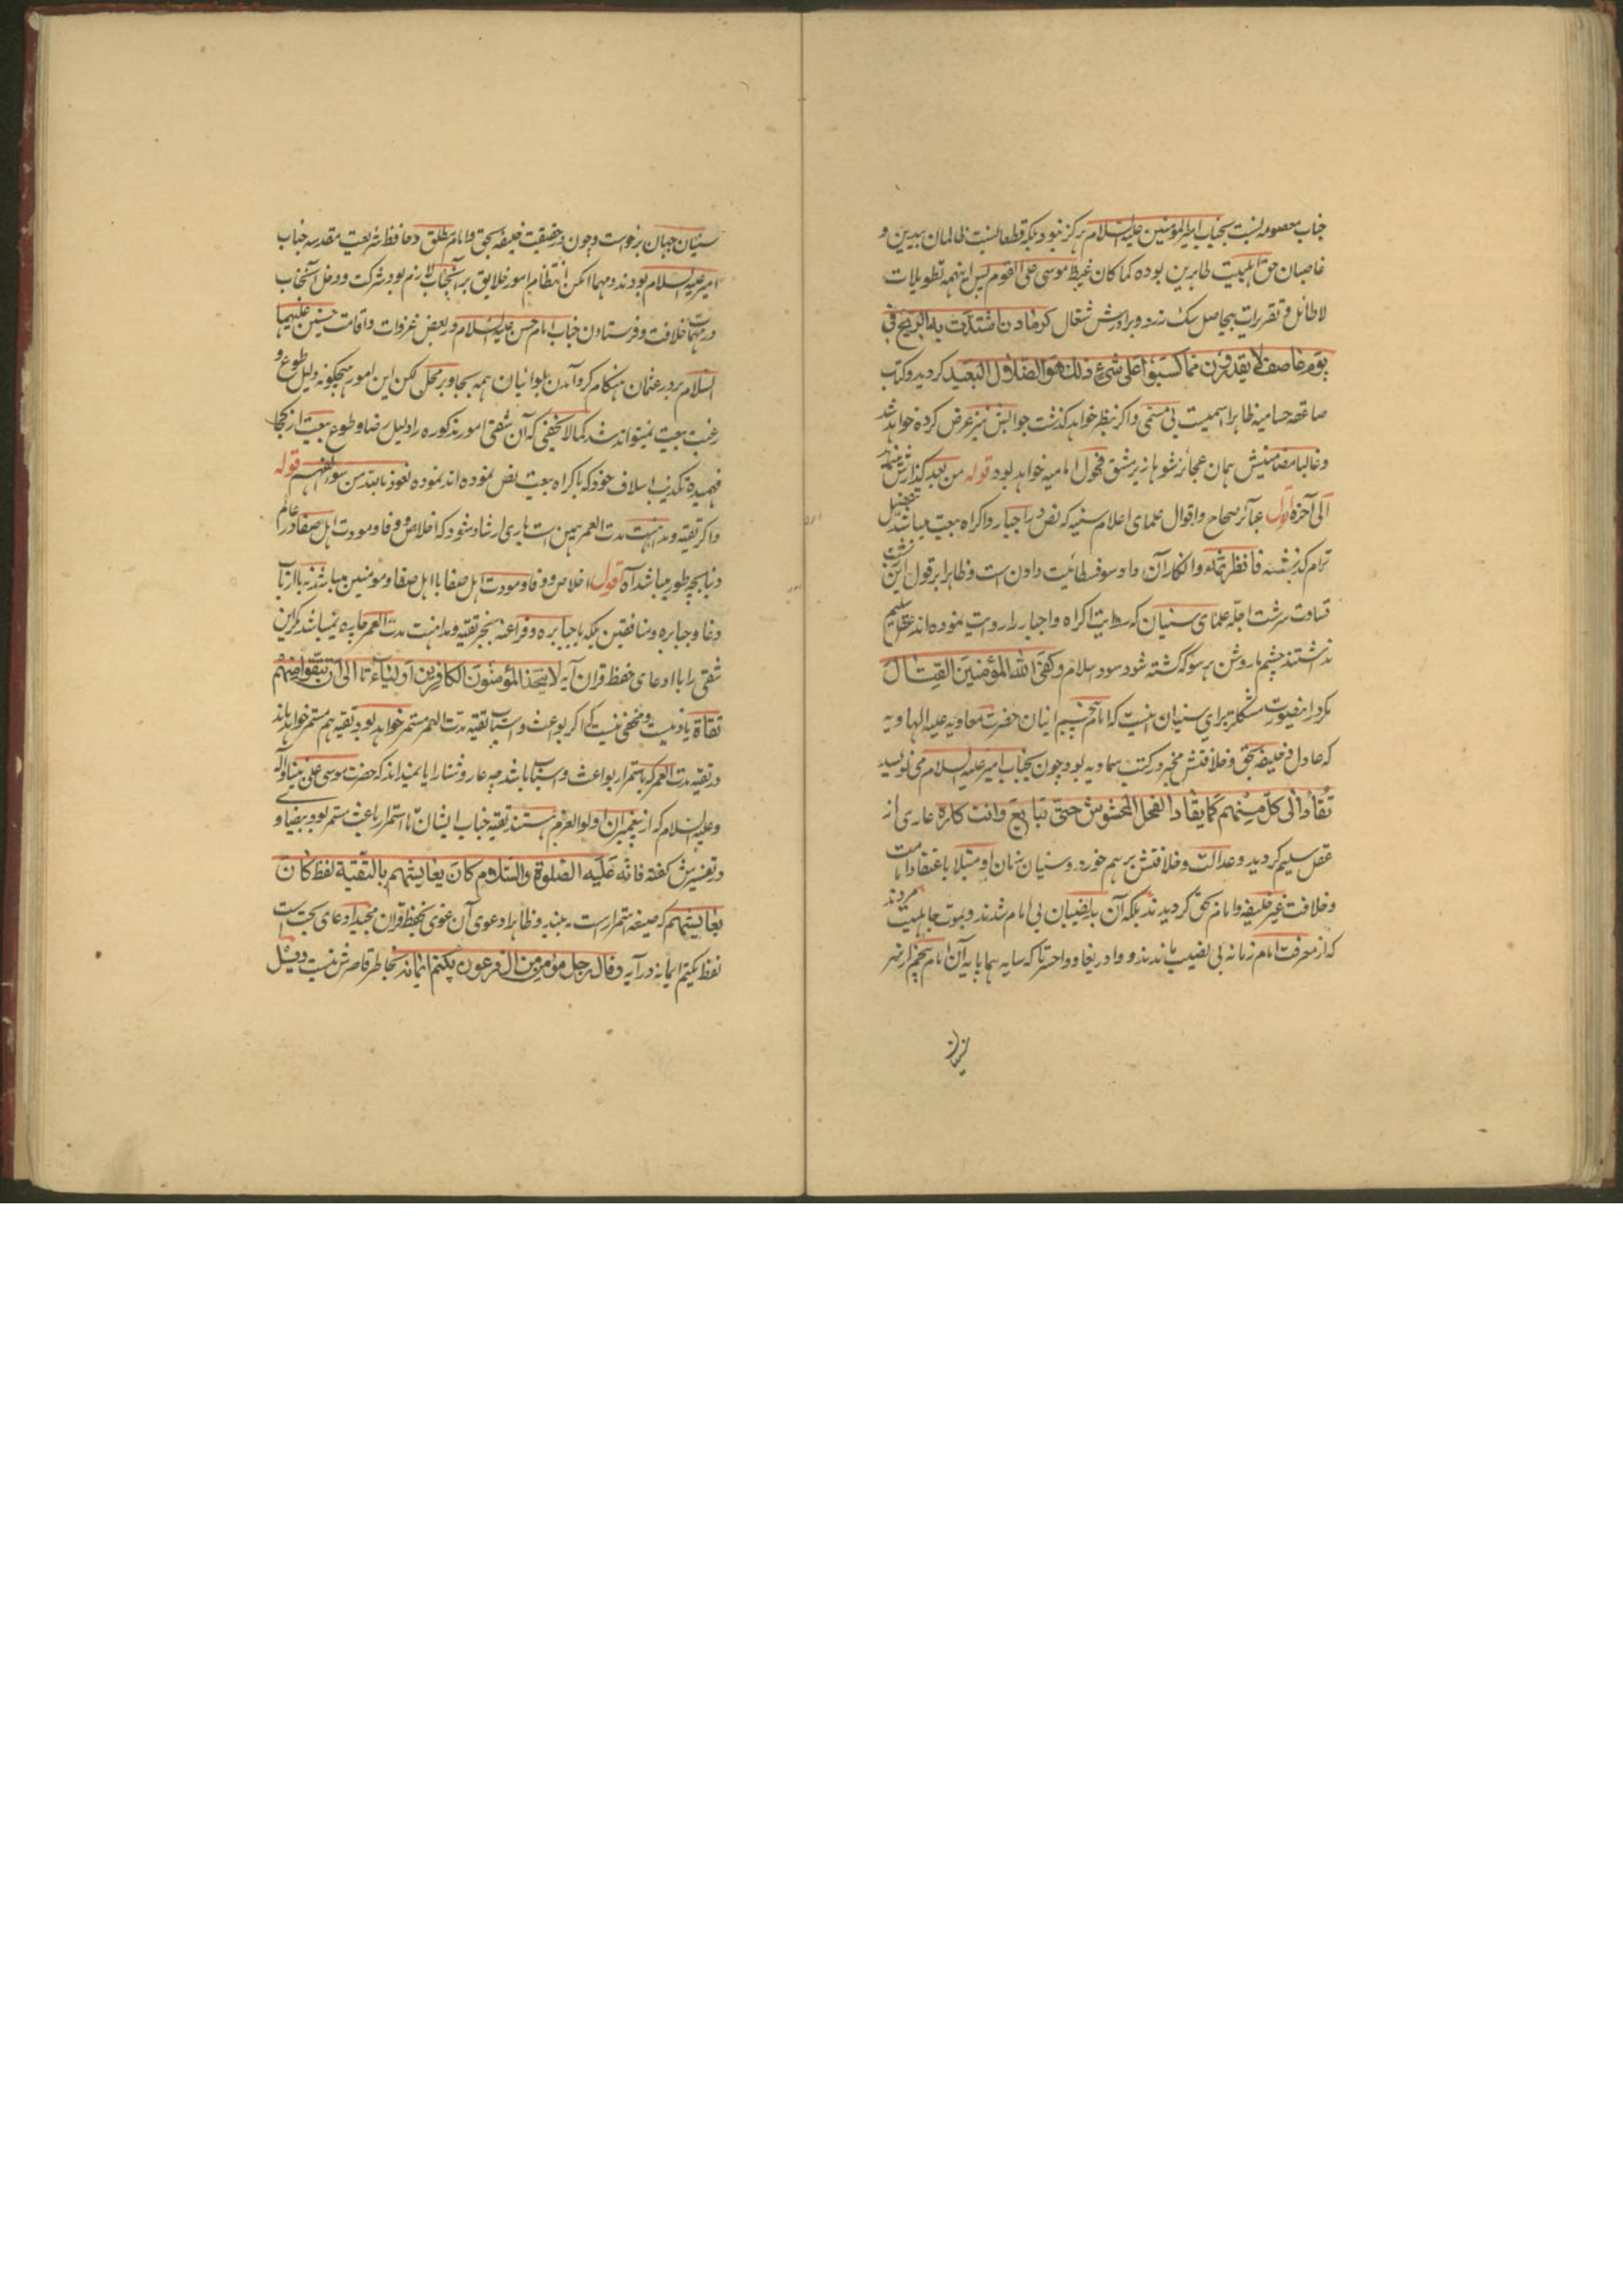 جناب معصومه نسبت بجناب امیرالمؤمنین علیه السلام هرکز نبود بلکه قطعا نسبت ظالمان بیدین و
غاصبان حق اهلبیت طاهرین بوده کما کان غیظ موسی علی القوم پس اینهمه تطویلات
لاطائل و تقریرات بیحاصل سک زرد و برادرش شغال کرماد ن اشتدت به الریح فی
یوم عاصف لا یقدرون مما کسبوا علی شیء ذلک هو الضلال البعید کردید و کتاب
صاعقه حسامیه ظاهرا اسمیست بی مسمی و اکر بنظر خواهد کذشت جوابش نیز عرض کرده خواهد شد
و غالبا مضامینش همان عجائز شوهاز یر مشق فحول امامیه خواهد بود قوله من بعد کذارش مینماید
الی آخره اقول عبائر صحاح و اقوال علمای اعلام سنیه که نص در اجبار و اکراه بیعت میباشد بتفضیل
ترام کذشته فانظر ثمه و انکار آن داد سوفسطائیت دادن است و ظاهرا بر قول این
قساوت سرشت اجلّه علمای سنیان که روایت اکراه و اجبار را روایت نموده اند عقل سلیم
نداشتند چشم ما روشن هر سو که کشته شود سود اسلام و کفی الله المؤمنین القتال
مکر در اینصورت مشکلتر برای سنیان اینست که امام پنجم ایشان حضرت معاویه علیه الهاویه
که عادل و خلیفه بحق و خلافتش مخبر در کتب سماویه بود چون بجناب امیر علیه السلام می نویسد
تقاد الی کل منهم کما یقاد الفحل المخشوش حتی تبایع و انت کاره عاری از
عقل سلیم کردید و عدالت و خلافتش برهم خورد و سنیان زمان او مبتلا باعتقاد امامت
و خلافت غیر خلیفه و امام بحق کردیدند بلکه آن بانصیبان بی امام شدند و بموت جاهلیت مردند
که از معرفت امام زمانه بی نصیب ماندند و وا دریغا و واحسرتا که سایه هما پایه آن امام پنجم از سر
سنیان
سنیان جهان برخواست و چون در حقیقت خلیفه بحق و امام مطلق و حافظ شریعت مقدسه جناب
امیر علیه السلام بودند و مهما امکن انتظام امور خلایق بر آنجناب لازم بود شرکت و دخل آنجناب
در مهمات خلافت و فرستادن جناب امام حسن علیه السلام در بعض غزوات و اقامت حسنین علیهما
السلام بر در عثمان هنکام کرد آمدن بلوائیان همه بجا و بر محل لکن این امور هیچکونه دلیل طوع و
رغبت بیعت نمیتواند شد کما لا یخفی که آن شقی امور مذکوره را دلیل رضا و طوع بیعت از کجا
فهمیده تکذیب اسلاف خود که باکراه بیعت نص نموده اند نموده نعوذ بالله من سوء الفهم قوله
و اکر تقیه و مداهنت مدت العمر همین است باری ارشاد شود که اخلاص و وفا و مودت اهل صفا در عالم
دنیا بچه طور میباشد آه اقول اخلاص و وفا و مودت اهل صفا با اهل صفا و مومنین میباشد نه با ارباب
دغا و جبابره و منافقین بلکه با جبابره و فراعنه بجز تقیه و مداهنت مدت العمر چاره نمیباشد مکر این
شقی را با ادعای حفظ قرآن آیه لا یتخذ المؤمنون الکافرین اولیاء تا الی ان تتقوا منهم
تقاة یاد نیست و مخفی نیست که اکر بواعث و اسباب تقیه مدت العمر مستمر خواهد بود تقیه هم مستمر خواهد ماند
در تقیه مدت العمر که باستمرار بواعث و اسباب باشد چه عار و شنار آیا نمیداند که حضرت موسی علی نبینا و آله
و علیه السلام که از پیغمبران اولو العزم هستند تقیه جناب ایشان تا استمرار باعث مستمر بود بیضاوی
در تفسیرش کفته فانه علیه الصلوة والسلام کان یعایشهم بالتقیة لفظ کان
یعایشهم که صیغه استمرار است به بیند و ظاهرا دعوی آن غوی بحفظ قرآن مجید ادعای بحت است
لفظ یکتم ایمانه در آیه و قال رجل مؤمن من آل فرعون یکتم ایمانه بخاطر قاصرش نیست و قیل